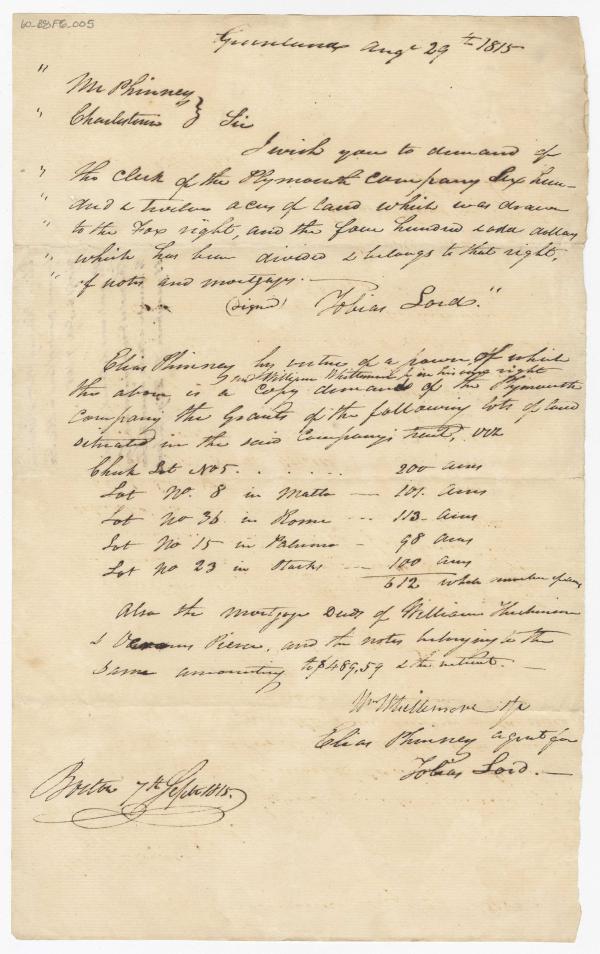 60_88F6_005
Augt 29th 1815
" Mr Phinney }
" Charlestown } Sir
I wish you to demand of
" the Clerk of the Plymouth Company Six hun-
" dred & twelve acres of land which was drawn
" to the Fox right, and the four hundred & odd dollars
" which has been divided & belongs to that right,
" of notes and mortgages.
(signed) Tobias Lord."
Elias Phinney by virtue of a power, of which
and William Whittemore Jr in his own right
the above is a Copy demands of the Plymouth
Company the Grants of the following lots of land
situated in the said Company's tract, viz
Lot No 5. . . . . . . 200 acres
Lot No. 8 in Malta — 101. Acres
Lot No 36 in Rome -- 113 - acres
Lot No 15 in Palermo - 98 acres
Lot No 23 in Starks --- 100 acres
612 whole number of acres
Also the mortgage Deeds of William
& Pierce, and the notes belonging to the
same amounting to $489,59 & the interest. —
Wm Whittemore Jr
Elias Phinney agent for
Tobias Lord. —
Boston 7th Septr 1815.